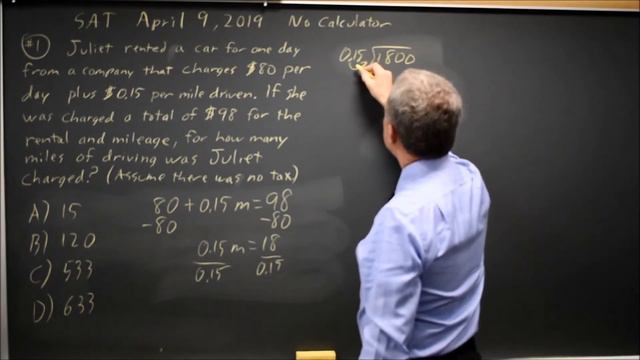 SAT April 9, 2019 No Calculator
#1 Juliet rented a car for one day
from a company that charges $80 per
day plus $0.15 per mile driven. If she
was charged a total of $98 for the
rental and mileage, for how many
miles of driving was Juliet
charged? (Assume there was no tax)
A) 15
B) 120
C) 533
D) 633
80 + 0.15 m = 98
-80 -80
0.15 m = 18
0.15 0.15
0.15 1800